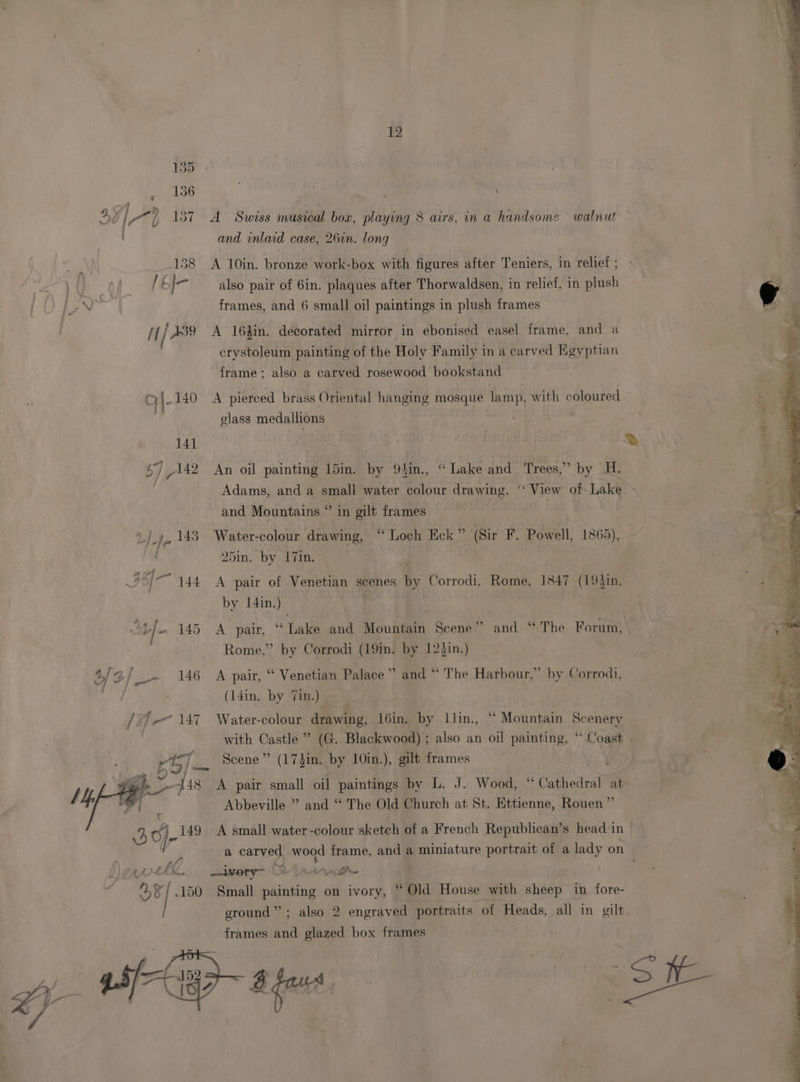 12
135
136
28/- 137 A Swiss musical box, playing 8 airs, in a handsome walnut
and inlaid case, 26in. long
138 A 10in. bronze work-box with figures after Teniers, in relief ;
16/- also pair of 6in. plaques after Thorwaldsen, in relief, in plush
frames, and 6 small oil paintings in plush frames
11/ 139 A 16½in. decorated mirror in ebonised easel frame, and a
crystoleum painting of the Holy Family in a carved Egyptian
frame ; also a carved rosewood bookstand
140 A pierced brass Oriental hanging mosque lamp, with coloured
glass medallions
141
142 An oil painting 15in. by 9½in., “ Lake and Trees,” by H.
Adams, and a small water colour drawing, “ View of Lake
and Mountains ” in gilt frames
143 Water-colour drawing, “ Loch Eck ” (Sir F. Powell, 1865),
25in. by 17in.
144 A pair of Venetian scenes by Corrodi, Rome, 1847 (19½in.
by 14in.)
145 A pair, “ Lake and Mountain Scene ” and “ The Forum,
Rome,” by Corrodi (19in. by 12½in.)
146 A pair, “ Venetian Palace ” and “ The Harbour,” by Corrodi,
(14in. by 7in.)
147 Water-colour drawing, 16in. by 11in., “ Mountain Scenery
with Castle ” (G. Blackwood) ; also an oil painting, “ Coast
Scene ” (17½in. by 10in.), gilt frames
148 A pair small oil paintings by L. J. Wood, “ Cathedral at
Abbeville ” and “ The Old Church at St. Ettienne, Rouen ”
30/- 149 A small water-colour sketch of a French Republican’s head in
a carved wood frame, and a miniature portrait of a lady on
ivory
28/ 150 Small painting on ivory, “ Old House with sheep in fore-
ground ” ; also 2 engraved portraits of Heads, all in gilt
frames and glazed box frames
151
152